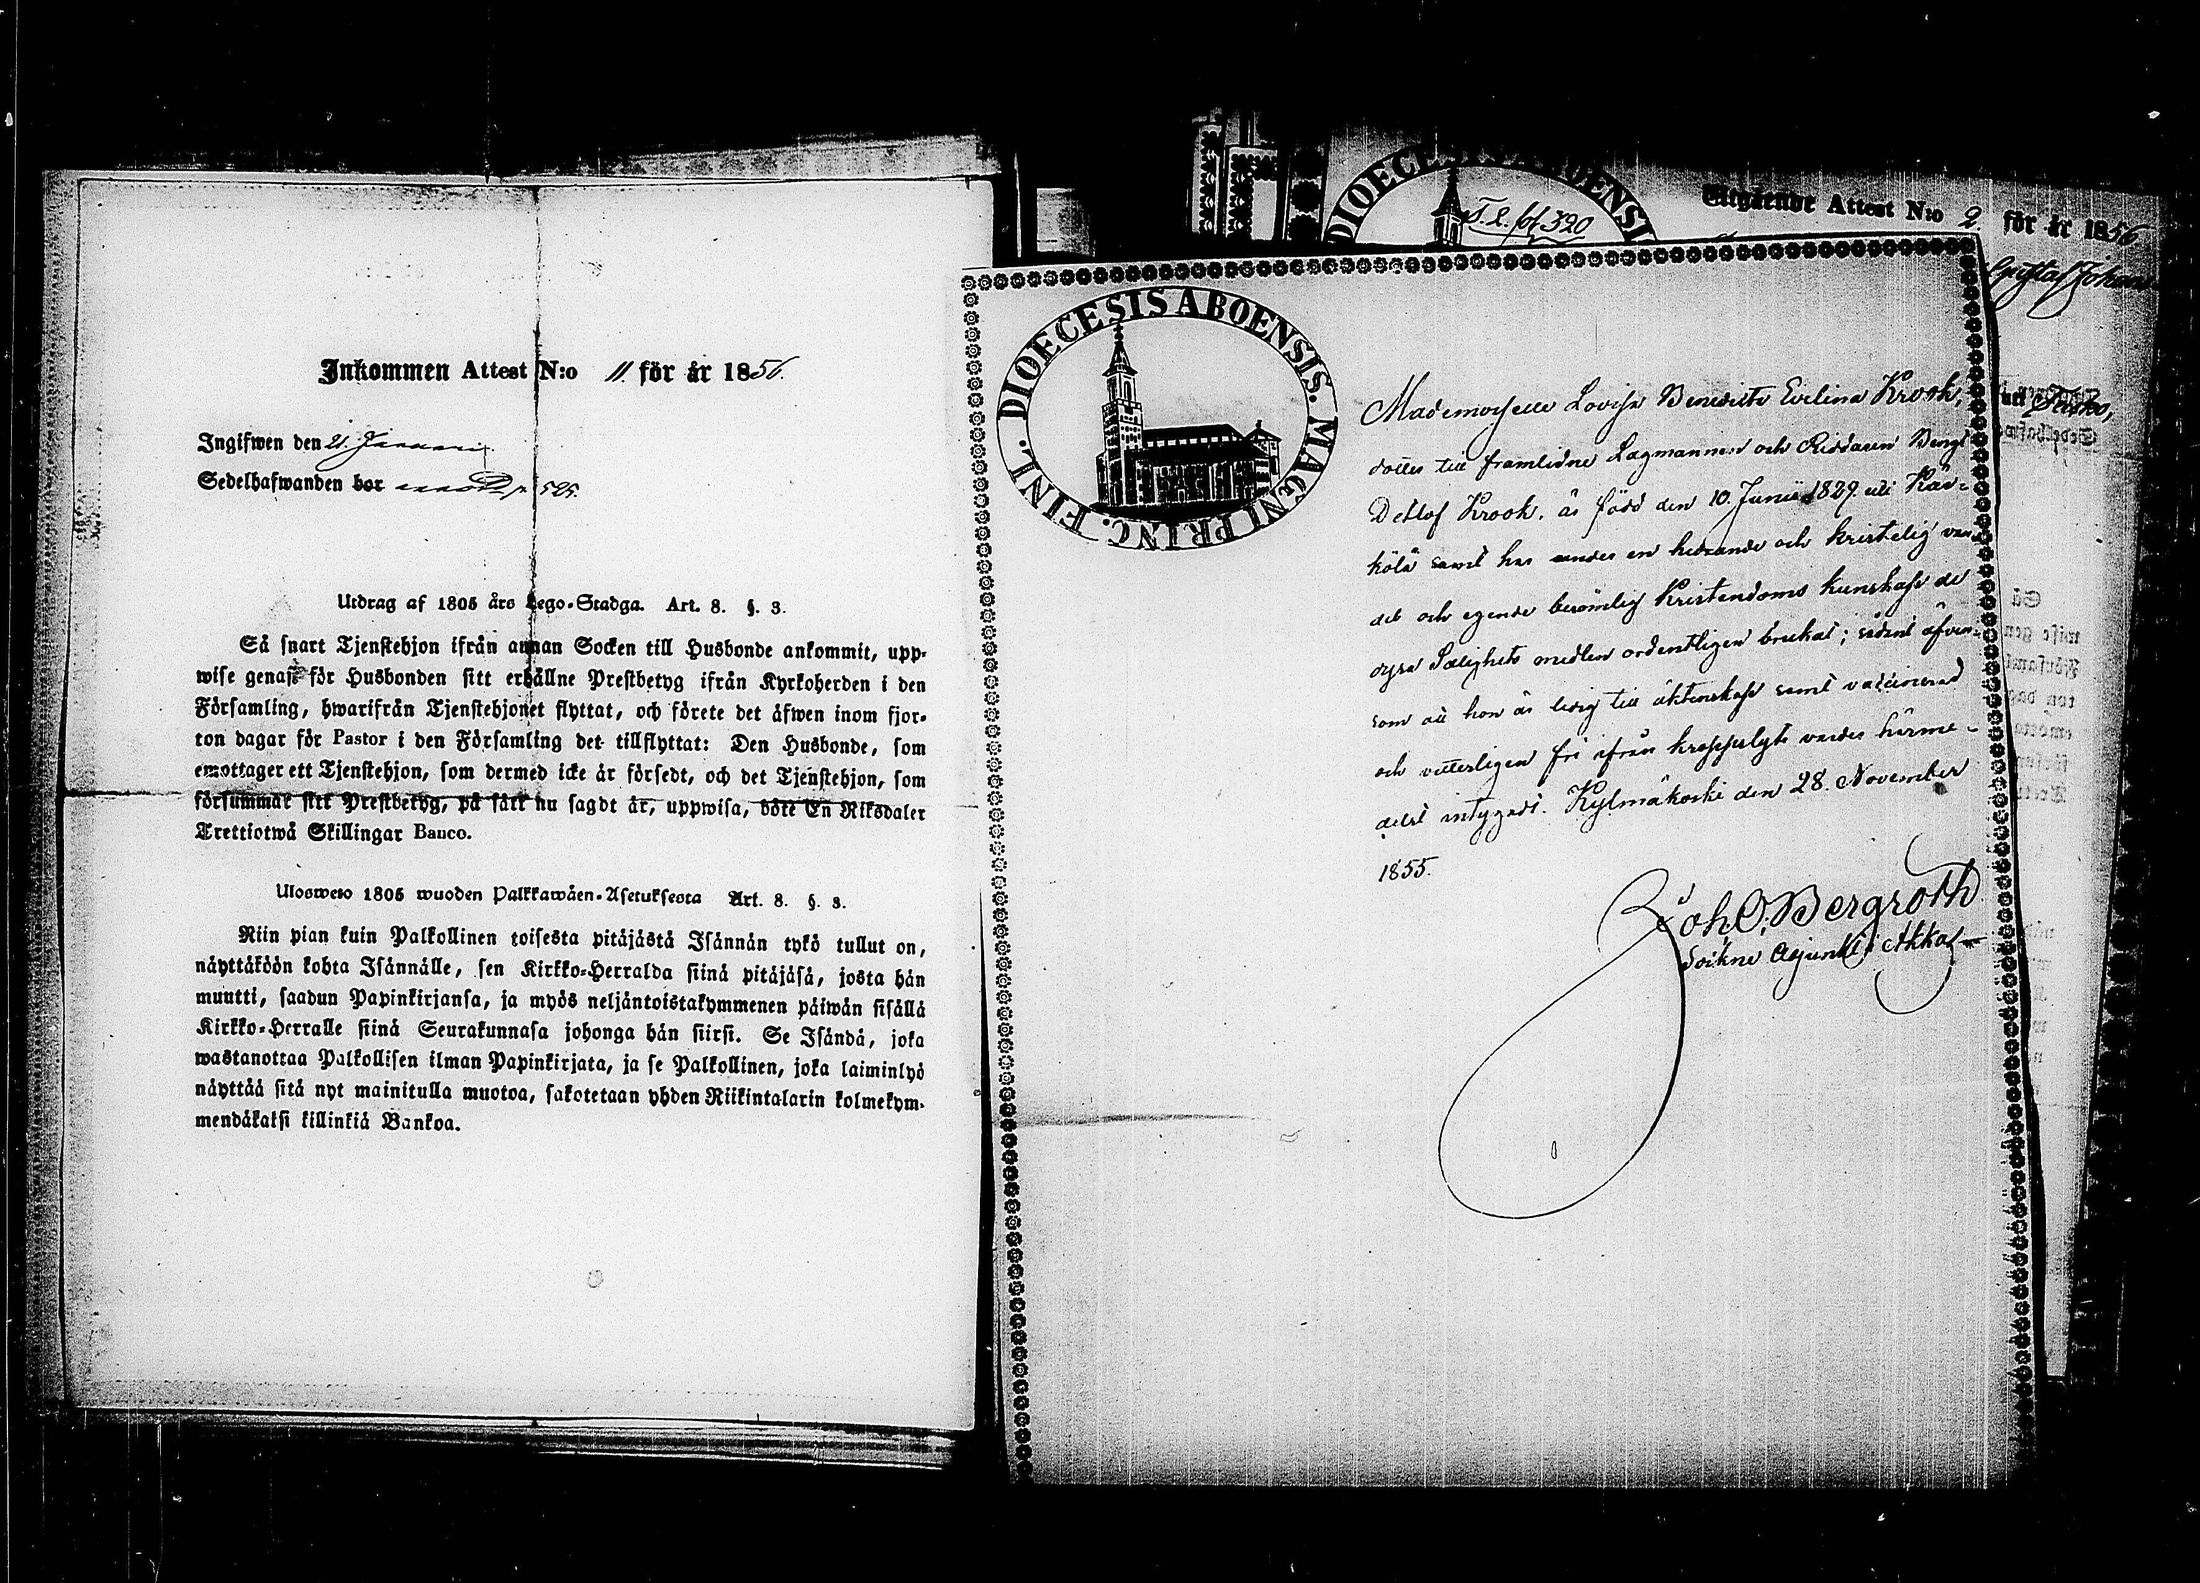 Inkommen Attest N:o 11. för år 1856.
Ingifwen den 21. Januari
Sedelhafwanden bor p. 525.
Utdrag af 1805 års Lego-Stadga. Art. 8. §. 3.
Så snart Tjenstehjon ifrån annan Socken till Husbonde ankommit, upp-
wise genast för Husbonden sitt erhållne Prestbetyg ifrån Kyrkoherden i den
Församling, hwarifrån Tjenstehjonet flyttat, och förete det äfwen inom fjor-
ton dagar för Pastor i den Församling det tillflyttat: Den Husbonde, som
emottager ett Tjenstehjon, som dermed icke är försedt, och det Tjenstehjon, som
försummar sitt Prestbetyg, på sätt nu sagdt är, uppwisa, böte En Riksdaler
Trettiotwå Skillingar Banco.
Ulosweto 1805 wuoden Palkkawäen-Asetuksesta Art. 8. §. 3.
Niin pian kuin Palkollinen toisesta pitäjästä Isännän tykö tullut on,
näyttäköön kohta Isännälle, sen Kirkko-Herralda siinä pitäjäsä, josta hän
muutti, saadun Papinkirjansa, ja myös neljäntoistakymmenen päiwän sisällä
Kirkko-Herralle siinä Seurakunnasa johonga hän siirsi. Se Isändä, joka
wastanottaa Palkollisen ilman Papinkirjata, ja se Palkollinen, joka laiminlyö
näyttää sitä nyt mainitulla muotoa, sakotetaan yhden Riikintalarin kolmekym-
mendäkaksi killinkiä Bankoa.
DIOECESIS ABOENSIS
T. L. fol 320
Utgående Attest N:o 2. för år 1856
Gustaf Johan
DIOECESIS ABOENSIS. MAGNI PRINC. FINL.
Mademoiselle Lovisa Benedicta Evelina Krook,
dotter till framlidne Lagmannen och Riddaren Bengt
Detlof Krook, är född den 10. Junii 1829 uti Kär-
kölä samt har under en hedrande och kristelig van-
del och egende berömlig Kristendoms kunskap de
dyra Salighets medlen ordentligen brukat; sådant äfven-
som att hon är ledig till äktenskap samt vaccinerad
och vetterligen fri ifrån kroppslyte varder härme-
delst intygadt. Kylmäkoski den 28. November
1855.
Joh. O. Bergroth
Sockne Adjunkt i Akkas